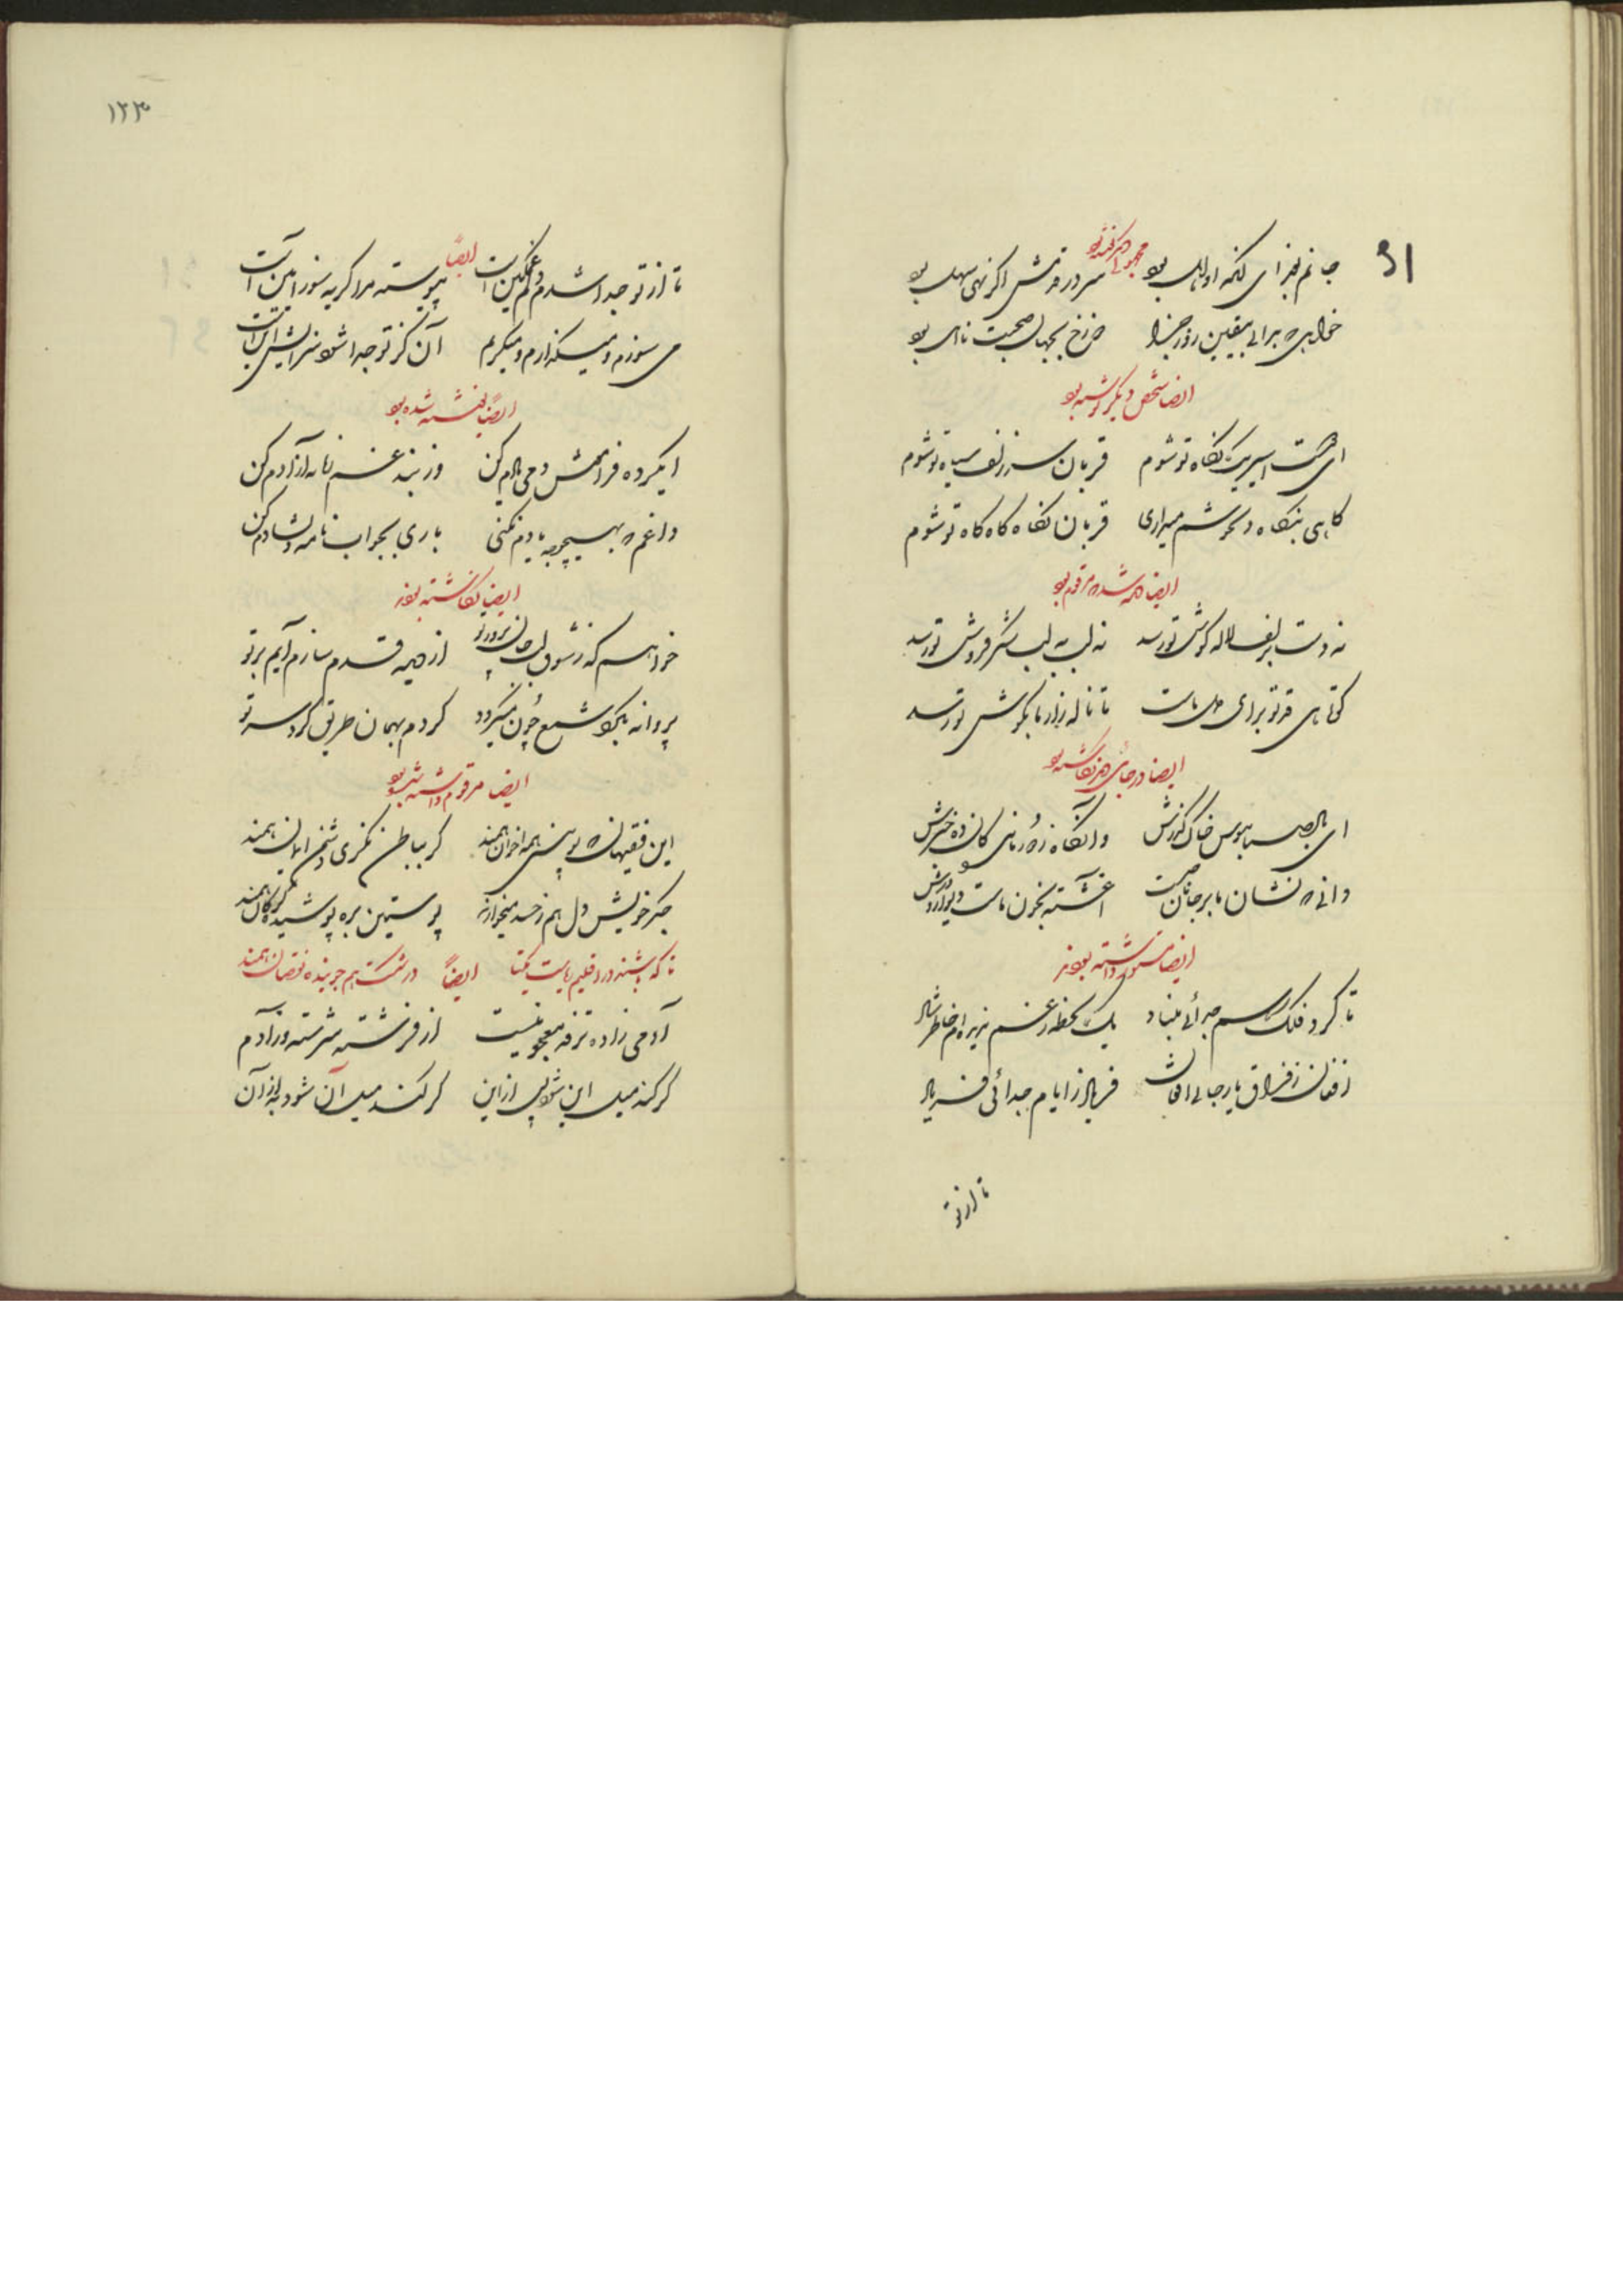 جانم بفدای آنکه او اهل بود
سر در قدمش اگر نهی سهل بود
خواهی که بدانی بیقین روز جزا
دوزخ بجهان صحبت نااهل بود
ایضا شخص دیگر نوشته بود
ای من اسیر یک نگاه تو شوم
قربان سر زلف سیاه تو شوم
گاهی بنگاه دلخوشم میداری
قربان نگاه گاه گاه تو شوم
ایضا مرقوم بود
نه دست بزلف لاله گوش تو رسد
نه لب به لب شکر فروش تو رسد
کوتاهی قد تو برای دل ماست
تا ناله زار ما بگوش تو رسد
ایضا در جای دیگر نگاشته بود
ای باد صبا ببوس خاک گذرش
وآنگاه ز درد ما کان ده خبرش
دانی که نشان ما بر جانان چیست
آغشته بخون ماست دیوار و درش
ایضا داشته بودند
تا کرد فلک رسم جدائی بنیاد
یک لحظه ز غم ندیده ام خاطر شاد
افغان ز فراق یار جانی افغان
فریاد ز ایام جدائی فریاد
تا از تو
۱۲۳
تا از تو جدا شدم دلم غمگین است
ایضاً
پیوسته مرا گریه سوز این است
می سوزم و میگدازم و میگریم
آن کز تو جدا شود سزایش این است
ایضاً نوشته شده بود
ایکرده فراموش دمی یادم کن
وز بند غم زمانه آزادم کن
دانم که بهیچوجه یادم نکنی
باری بجواب نامه دلشادم کن
ایضا نگاشته بودند
خواهم که ز شوق لب جان پرور تو
از دیده قدم سازم و آیم بر تو
پروانه بگرد شمع چون میگردد
گردم بهمان طریق گرد سر تو
ایضا مرقوم داشته بود
این فقیهان که بینی همه اخوان همند
گر بباطن نگری دشمن ایمان همند
جگر خویش و دل هم ز حسد میخوارند
پوستین بره پوشیده و گرگان همند
تا که باشند در اقلیم ریاست یکتا
ایضاً
در شکست هم جوینده نقصان همند
آدمی زاده طرفه معجونیست
از فرشته سرشته وز آدم
گر کند میل این شود پس از این
گر کند میل آن شود به از آن